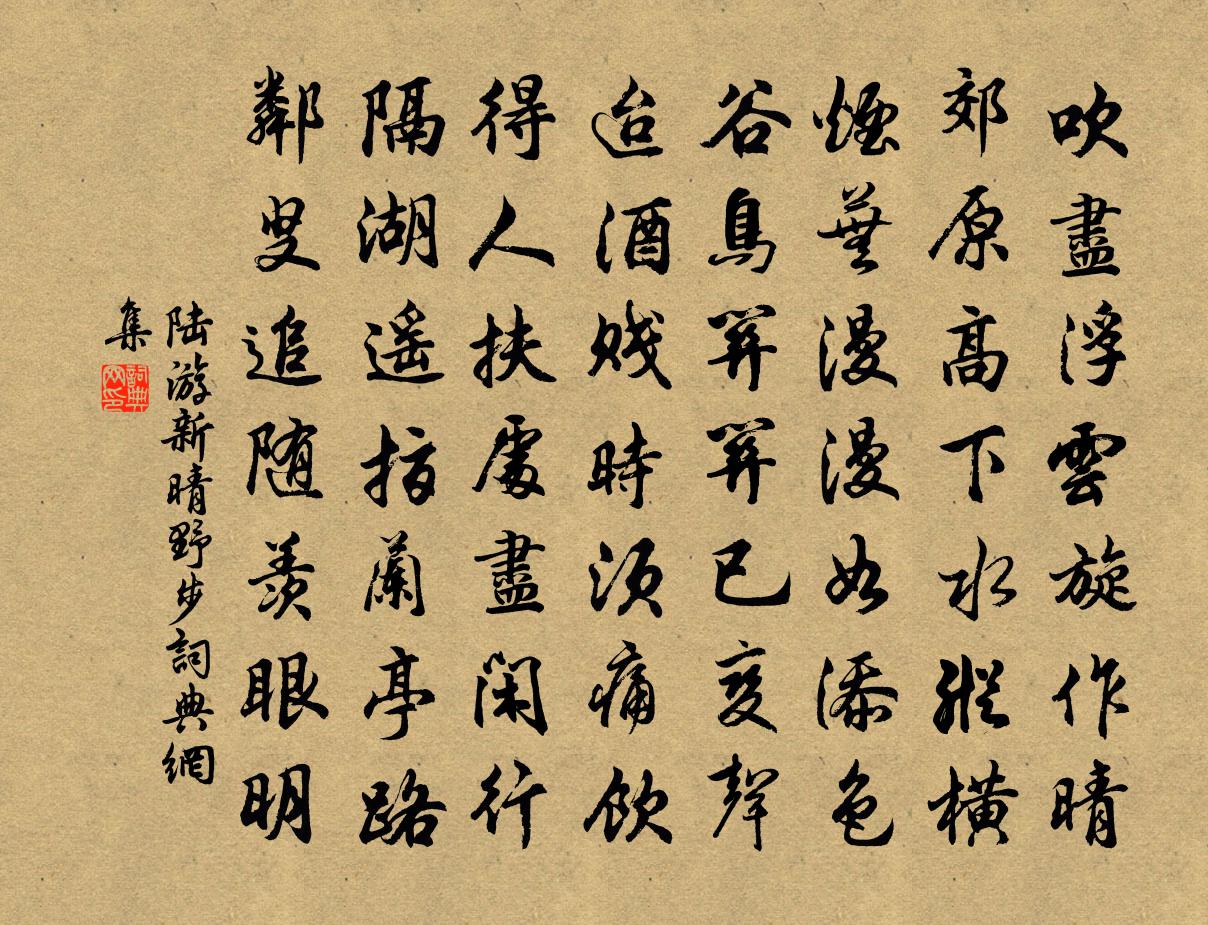 吹盡浮雲旋作晴
郊原高下水縱橫
煙蕪漫漫如添色
谷鳥關關已變聲
迨酒賤時須痛飲
得人扶處盡閑行
隔湖遙指蘭亭路
鄰叟追隨羨眼明
陸游新晴野步詞典網
集
詞典
网印